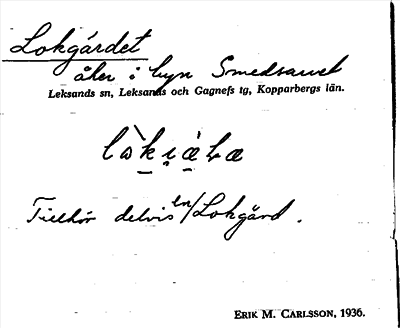 Lokgårdet
åker i byn Smedsarvet
Leksands sn, Leksands och Gagnefs tg, Kopparbergs län.
Tillhör delvis en/Lokgård.
ERIK M. CARLSSON, 1936.